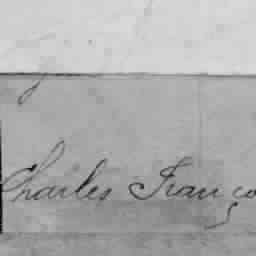 Charles Franço